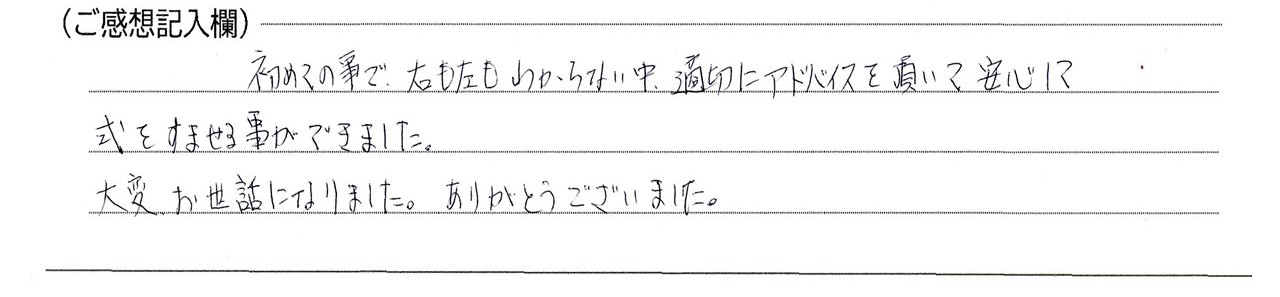 (ご感想記入欄)
初めての事で、右も左もわからない中、適切にアドバイスを頂いて安心して
式をすませる事ができました。
大変、お世話になりました。ありがとうございました。